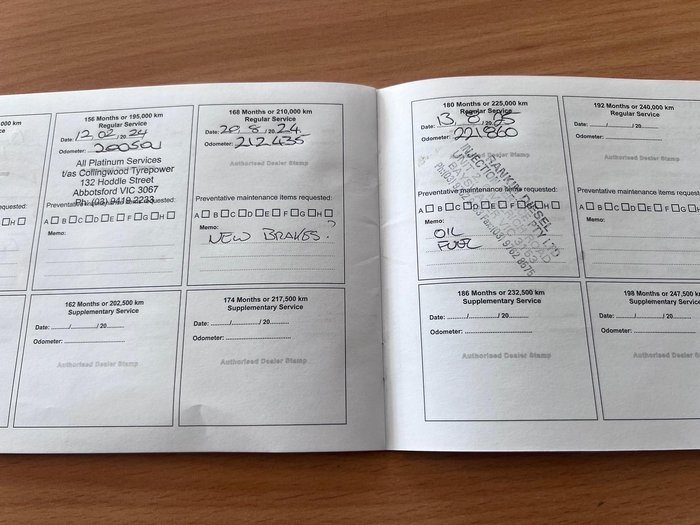 156 Months or 195,000 km
Regular Service
Date: 12/02/20 24
Odometer:
All Platinum Services
t/as Collingwood Tyrepower
132 Hoddle Street
Abbotsford VIC 3067
Ph: (03) 9419 2233
requested:
A B C D E F G H
Memo:
162 Months or 202,500 km
Supplementary Service
Date: ........./........../ 20.........
Odometer: ..............................
Authorised Dealer Stamp
168 Months or 210,000 km
Regular Service
Date: 20/8/20 24
Odometer: 212435
Authorised Dealer Stamp
Preventative maintenance items requested:
A B C D E F G H
Memo: ?
NEW BRAKES.
174 Months or 217,500 km
Supplementary Service
Date: ........./........../ 20.........
Odometer: ..............................
Authorised Dealer Stamp
180 Months or 225,000 km
Regular Service
Date: 13/8/20 25
Odometer: 221860
DIESEL
INJECTION
PTY LTD
Preventative maintenance items requested:
A B C D E F G H
Memo:
OIL
FUEL
186 Months or 232,500 km
Supplementary Service
Date: ........./........../ 20.........
Odometer: ..............................
Authorised Dealer Stamp
192 Months or 240,000 km
Regular Service
Date: ........./........../ 20.........
Odometer: ..............................
Authorised Dealer Stamp
Preventative maintenance items requested:
A B C D E F G H
Memo:
198 Months or 247,500 km
Supplementary Service
Date: ........./........../ 20.........
Odometer: ..............................
Authorised Dealer Stamp